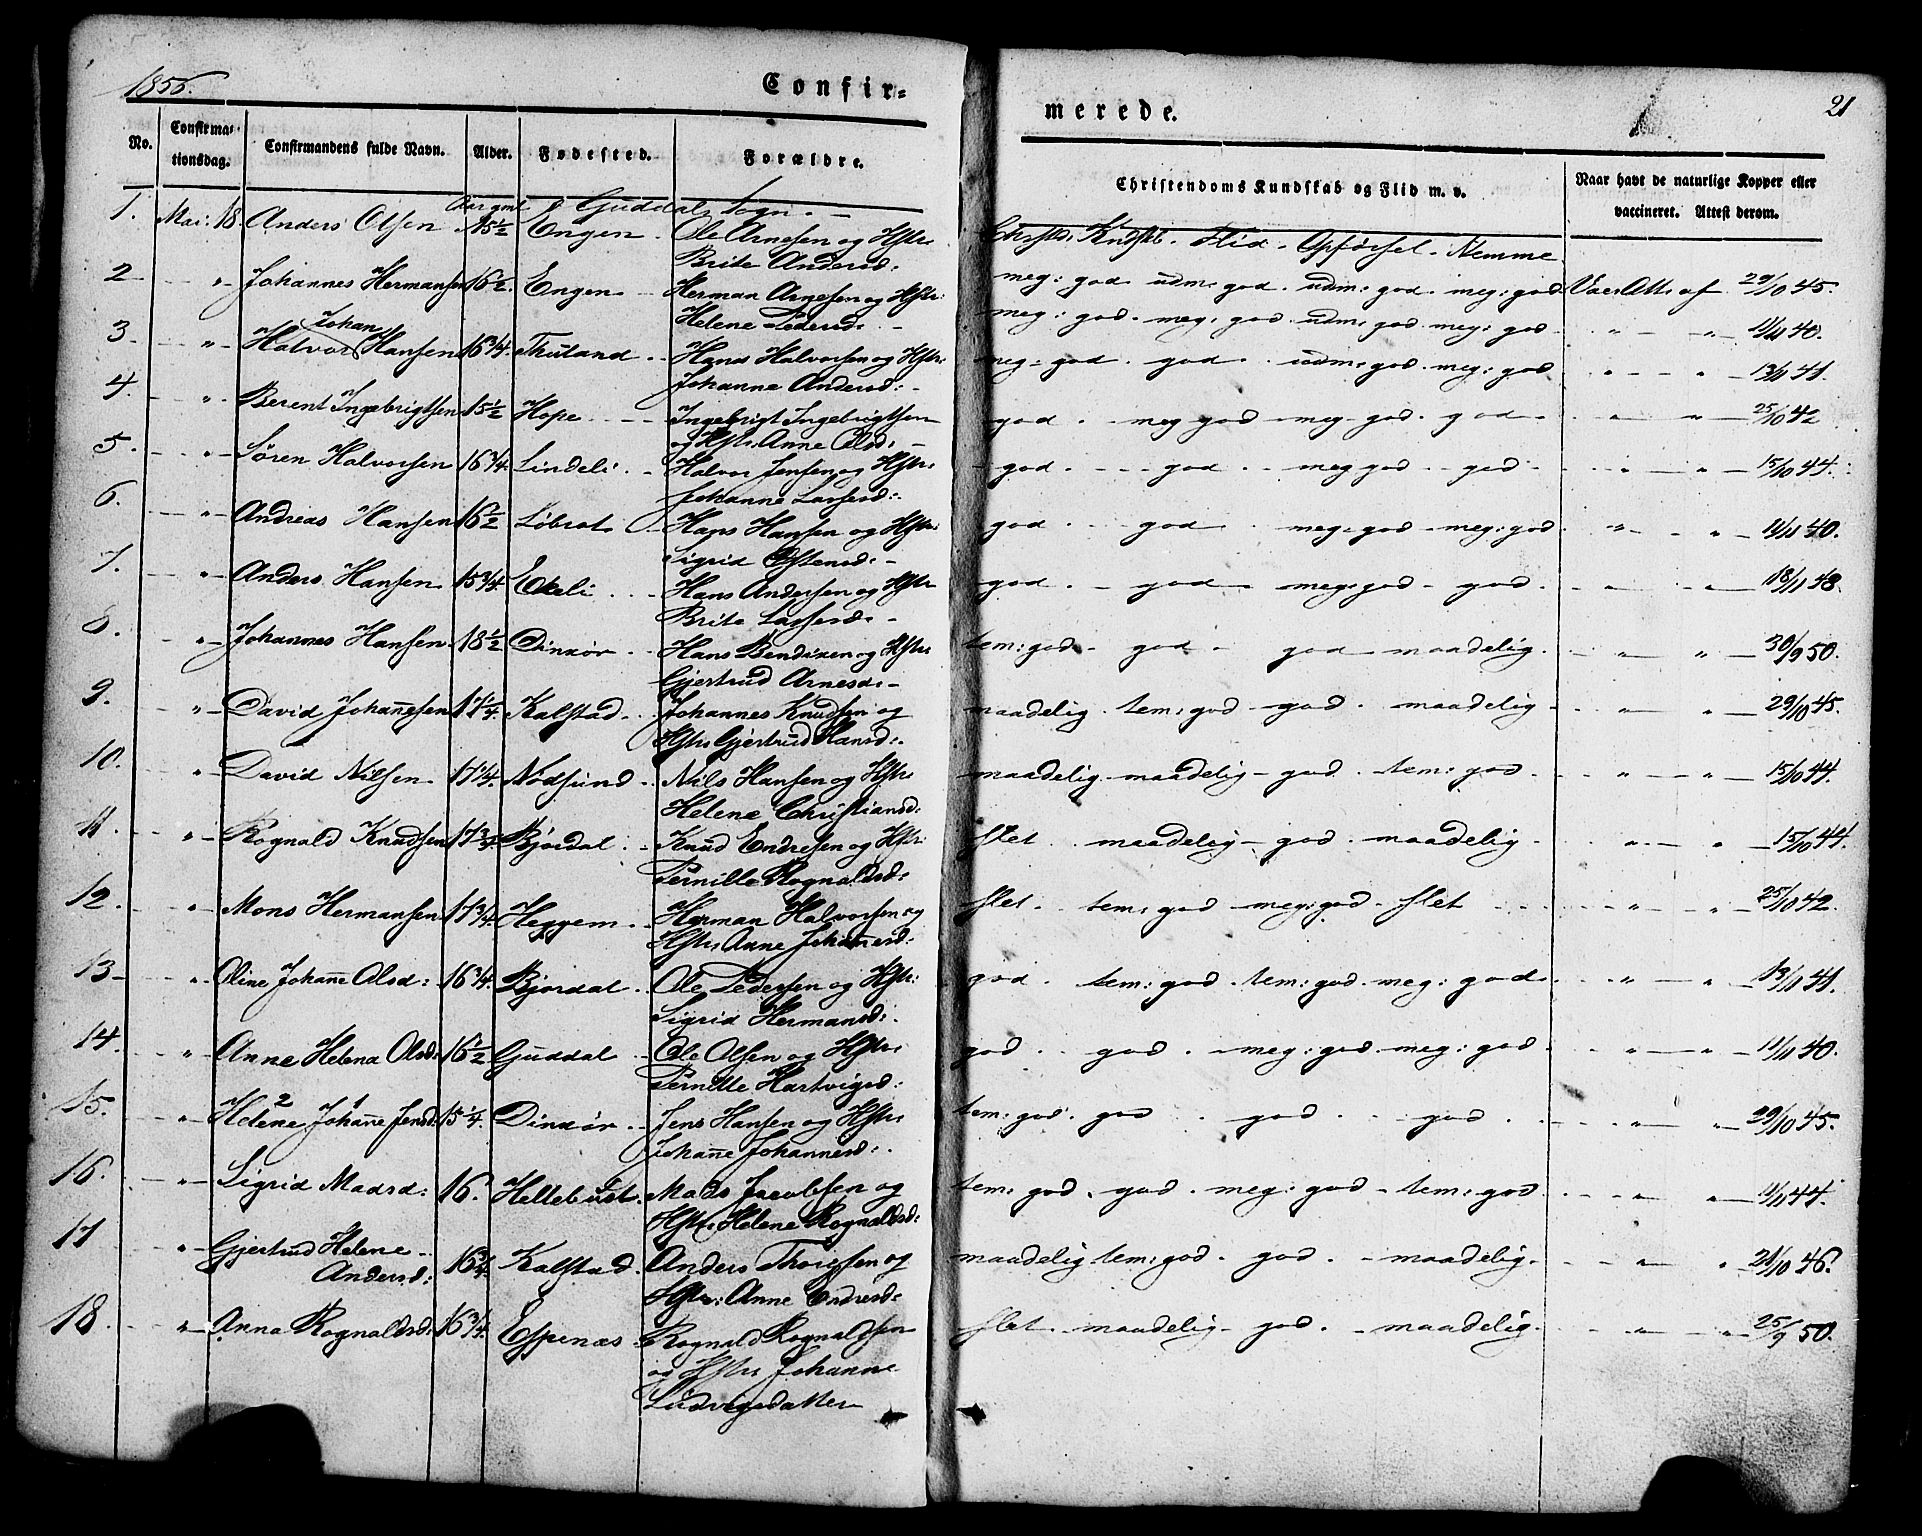 1856. Confir= merede. 21
No. Confirma= tionsdag. Confirmandens fulde Navn. Alder. Fødested. Forældre. Christendoms Kundskab og Flid m. v. Naar havt de naturlige Kopper eller vaccineret. Attest derom.
Guddals Sogn. -
1. Mai: 18. Anders Olsen 15½ Engen Ole Arnesen og Hstr: Christd: Kndskb. Flid - Opførsel - Nemme
Brite Andersd:
meg: god udm: god. udm: god. meg: god Vac: Att: af 29/10 45.
2 " Johannes Hermansen 16½ Engen Herman Arnesen og Hstr:
Helene Pedersd: -
meg: god. meg: god udm: god meg: god " " 11/11 40.
Johan
3. " Halvor Hansen 16¾ Thuland Hans Halvorsen og Hstr:
Johanne Andersd: -
meg: god. god. udm: god. meg: god " " 13/11 41.
4. " Berent Ingebrigtsen 15½ Hope Ingebrigt Ingebrigtsen
og Hstr: Anne Olsd: -
god. meg god meg god. god " " 25/10 42
5. " Søren Halvorsen 16¾ Lindeli Halvor Jensen og Hstr:
Johanne Lassesd:
god. god. meg god god " " 15/10 44.
6. " Andreas Hansen 16½ Løbrot Hans Hansen og Hstr:
Sigrid Ostensd: -
god god meg: god meg: god " " 11/11 40.
7. " Anders Hansen 15¾ Ekeli Hans Andersen og Hstr
Brite Lassesd: -
god. god meg: god god. " " 18/11 48.
8. " Johannes Hansen 18½ Dinkør Hans Bendixen og Hstr:
Gjertrud Arnesd: -
tem: god god god maadelig. " " 30/9 50.
9. " David Johañesen 17¼ Kalstad Johannes Knudsen og
Hstr: Gjertrud Hansd:
maadelig. tem: god god. maadelig " " 29/10 45.
10. " David Nilsen 17¼ Nødsund Nils Hansen og Hstr:
Helene Christiansd:
maadelig. maadelig god. tem: god. " " 15/10 44.
11. " Rognald Knudsen 17¾ Bjørdal Knud Endresen og Hstr:
Pernille Rognaldsd:
slet. maadelig god. maadelig " " 15/10 44.
12. " Mons Hermansen 17¾ Heggem Herman Halvorsen og
Hstr: Anne Johañesd:
slet. tem: god meg: god. slet " " 25/10 42.
13 " Oline Johañe Olsd: 16¾ Bjørdal Ole Pedersen og Hstr:
Sigrid Hermansd:
god. tem: god. tem: god. meg: god " " 13/11 41.
14. " Anne Helena Olsd: 16½ Guddal Ole Olsen og Hstr:
Pernille Hartvigsd:
god god. meg: god. meg: god " " 11/11 40.
2 1
15. " Helene Johañe Jensd: 15¼ Dinkør Jens Hansen og Hstr:
Johañe Johannesd:
tem: god. god god god " " 29/10 45.
16. " Sigrid Madsd: 16. Hellebust Mads Jacobsen og
Hstr: Helene Rognaldsd:
tem: god. god. meg: god tem: god " " 11/11 44.
17 " Gjertrud Helene
Andersd: 16¾ Kalstad Anders Thoresen og
Hstr: Anne Endresd:
maadelig tem: god. god. maadelig. " " 21/10 46.
18. " Anna Rognaldsd: 16¾ Espenæs Rognald Rognaldsen
og Hstr: Johanne
Ludvigsdatter
slet maadelig god. maadelig. " " 25/9 50.